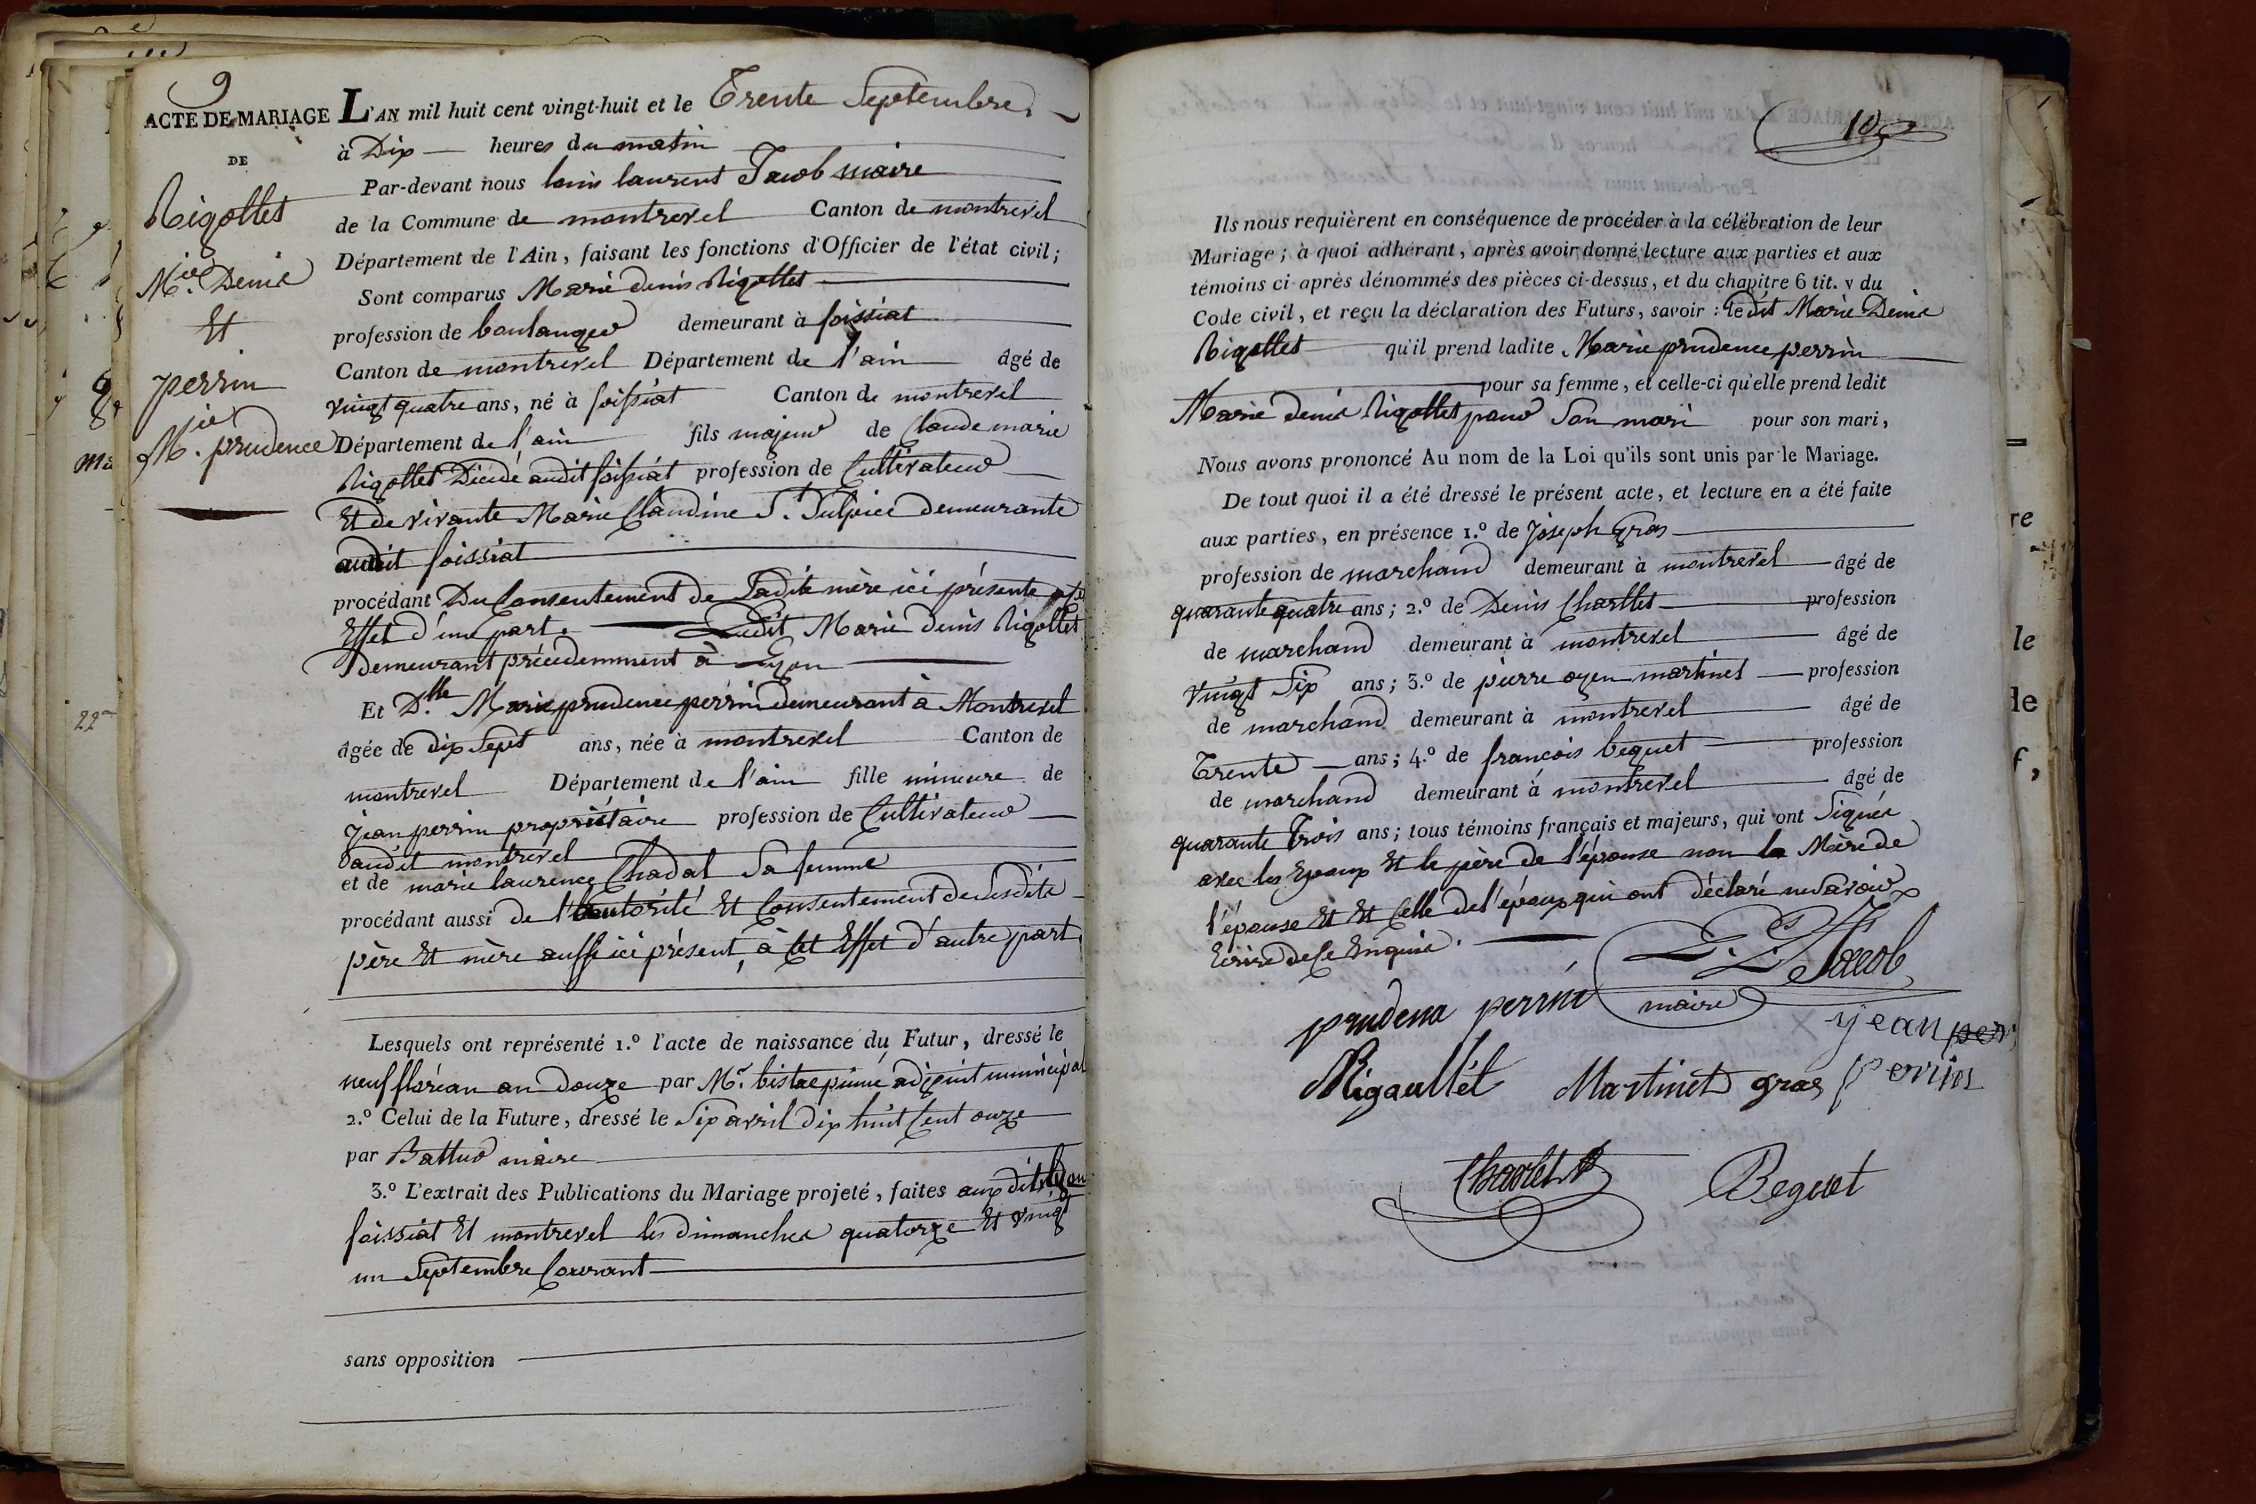 9
ACTE DE MARIAGE
DE
Rigollet
M.ie Denis
Et
perrin
M.ie prudence
L'AN mil huit cent vingt-huit et le Trente Septembre
à Dix heures du matin
Par-devant nous louis laurent Jacob maire
de la Commune de montrevel Canton de montrevel
Département de l'Ain, faisant les fonctions d'Officier de l'état civil;
Sont comparus Marie denis Rigollet
profession de boulanger demeurant à foissiat
Canton de montrevel Département de l'ain âgé de
vingt quatre ans, né à foissiat Canton de montrevel
Département de l'ain fils majeur de Claude marie
Rigollet Décédé audit foissiat profession de Cultivateur
Et de vivante Marie Claudine St. Sulpice demeurante
audit foissiat
procédant Du Consentement de Sadite mère ici présente
Effet d'une part. Ledit Marie denis Rigollet
demeurant précédemment à Lyon
Et D.lle Marie prudence perrin demeurant à Montrevel
âgée de dix Sept ans, née à montrevel Canton de
montrevel Département de l'ain fille mineure de
jean perrin propriétaire profession de Cultivateur
audit montrevel
et de marie laurence Chadal Sa femme
procédant aussi de l'autorité Et Consentement de Sesdits
père Et mère aussi ici présent, à Cet Effet d'autre part,
Lesquels ont représenté 1.º l'acte de naissance du Futur, dressé le
neuf floréan an douze par Mr. adjoint municipal
2.º Celui de la Future, dressé le Six avril dix huit Cent onze
par Battur maire
3.º L'extrait des Publications du Mariage projeté, faites aux dits lyon
foissiat Et montrevel les dimanches quatorze Et vingt
un Septembre Courant
sans opposition
10
Ils nous requièrent en conséquence de procéder à la célébration de leur
Mariage; à quoi adhérant, après avoir donné lecture aux parties et aux
témoins ci-après dénommés des pièces ci-dessus, et du chapitre 6 tit. v du
Code civil, et reçu la déclaration des Futurs, savoir: ledit Marie Denis
Rigollet qu'il prend ladite Marie prudence perrin
pour sa femme, et celle-ci qu'elle prend ledit
Marie denis Rigollet pour Son mari pour son mari,
Nous avons prononcé Au nom de la Loi qu'ils sont unis par le Mariage.
De tout quoi il a été dressé le présent acte, et lecture en a été faite
aux parties, en présence 1.º de Joseph Gras
profession de marchand demeurant à montrevel âgé de
quarante quatre ans; 2.º de Denis Charllet profession
de marchand demeurant à montrevel âgé de
vingt Six ans; 3.º de pierre oyen martinet profession
de marchand demeurant à montrevel âgé de
Trente ans; 4.º de francois bequet profession
de marchand demeurant à montrevel âgé de
quarante Trois ans; tous témoins français et majeurs, qui ont Signés
avec les Epoux Et le père de l'épouse non la Mère de
l'épouse Et Et Celle de l'époux qui ont déclaré ne Savoir
Ecrire de Ce Enquis.
L. L. Jacob
maire
prudena perrin
jean per
perrin
Rigaullet Martinet gras
Charlet Beguet